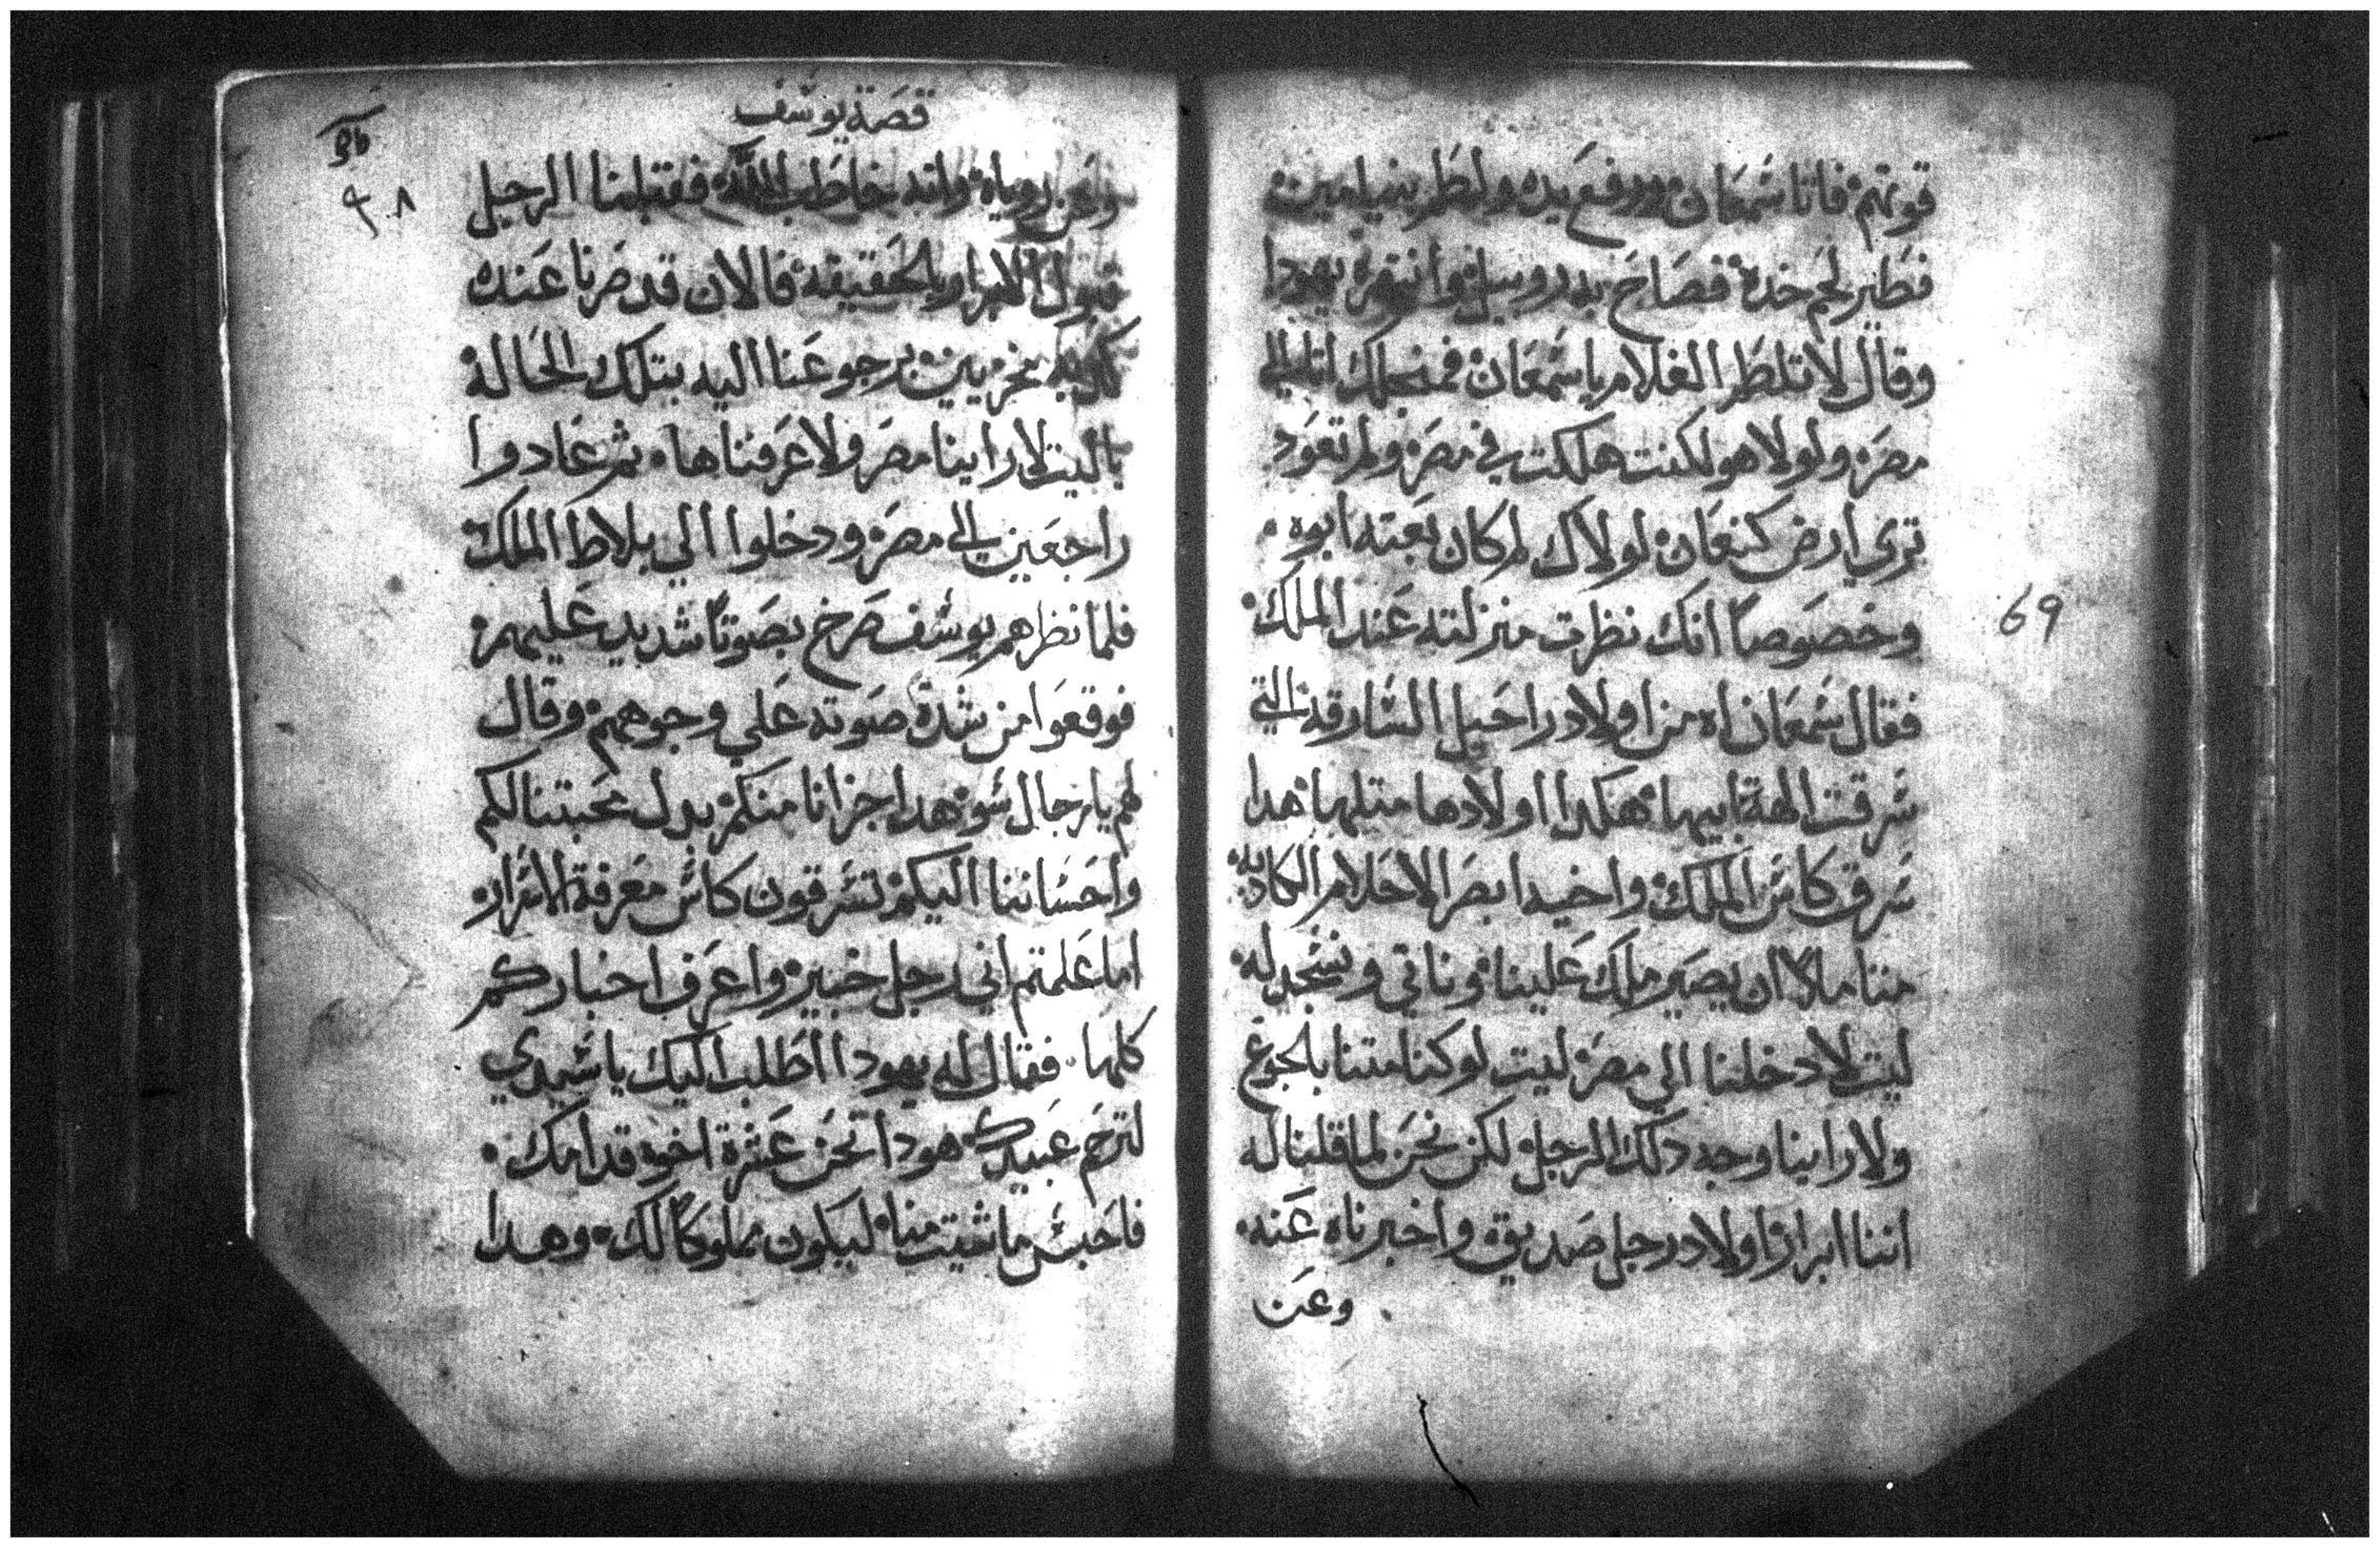 قوتهم فاتا شمعان ورفع يده ولطر بنيامين
فطير لحم خده فصاح به روبيل وانتهره يهودا
وقال لا تلطر الغلام يا شمعان فمنحلك اتا الي
مصر ولولا هو لكنت هلكت في مصر ولم تعود
تري ارض كنعان لولاك لم كان بعته ابوه
وخصوصاً انك نظرت منزلته عند الملك
فقال شمعان اه من اولاد راحيل السارقه التي
سرقت الهة ابيها هكدا اولادها متلها هدا
سرق كاس الملك واخيه ابصر الاحلام الكادبه
متاملا ان يصير ملك علينا وناتي ونسجد له
ليت لا دخلنا الي مصر ليت لو كنا متنا بالجوع
ولا راينا وجه دلك الرجل لكن نحن لما قلنا له
اننا ابرار اولاد رجل صديق واخبرناه عنه
وعن
69
قصة يوسف
وعن روياه وانه خاطب الله فقبلنا الرجل
قبول الابرار بالحقيقه فالان قد صرنا عنده
نحزيين برجوعنا اليه بتلك الحالة
يا ليت لا راينا مصر ولا عرفناها ثم عادوا
راجعين الي مصر ودخلوا الي بلاط الملك
فلما نظرهم يوسف صرخ بصوتاً شديد عليهم
فوقعوا من شدة صوته علي وجوههم وقال
لهم يا رجال سو هدا جزانا منكم بدل محبتنا لكم
واحساننا اليكم تسرقون كاس معرفة الاسرار
اما علمتم اني رجل خبير واعرف اخباركم
كلها فقال له يهودا اطلب اليك يا سيدي
لترحم عبيدك هودا نحن عشرة اخوه قدامك
فاحبس ما شيت منا ليكون مملوكاً لك وهدا